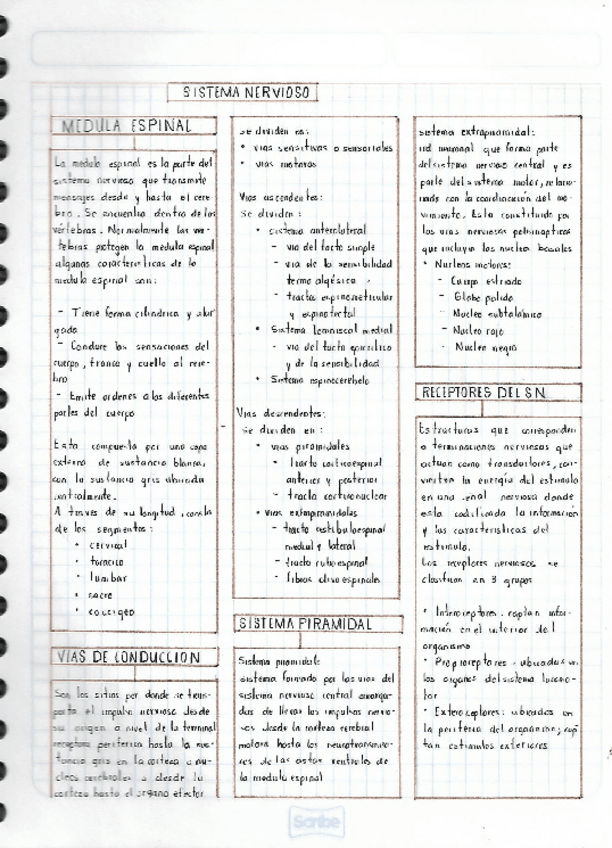 SISTEMA NERVIOSO
MEDULA ESPINAL
La medula espinal es la parte del
sistema nervioso que transmite
mensajes desde y hasta el cere-
bro. Se encuentra dentro de las
vértebras. Normalmente las ver-
tebras protegen la medula espinal
algunas caracteristicas de la
medula espinal son:
- Tiene forma cilindrica y alar
gada
- Conduce las sensaciones del
cuerpo, tronco y cuello al cere-
bro
- Emite ordenes a las diferentes
partes del cuerpo
Esta compuesta por una capa
externa de sustancia blanca,
con la sustancia gris ubicada
centralmente.
A traves de su longitud, consta
de los segmentos:
• cervical
• toracico
• lumbar
• sacro
• coccigeo
VIAS DE CONDUCCION
Son los sitios por donde se trans-
porta el impulso nervioso desde
su origen a nivel de la terminal
receptora periferica hasta la sus-
tancia gris en la corteza o nu-
cleos cerebrales o desde la
corteza hasta el organo efector
se dividen en:
• vias sensitivas o sensoriales
• vias motoras
Vias ascendentes:
Se dividen:
• sistema anterolateral
- via del tacto simple
- via de la sensibilidad
termo algésica
- tracto espinoreticular
y espinotectal
• Sistema lemniscal medial
- via del tacto epicritico
y de la sensibilidad
• Sistema espinocerebelo
Vias descendentes:
Se dividen en:
• vias piramidales
- tracto corticoespinal
anterior y posterior
- tracto corticonuclear
• vias extrapiramidales
- tracto vestibuloespinal
medial y lateral
- tracto rubroespinal
- fibras olivo espinales
SISTEMA PIRAMIDAL
Sistema piramidal:
sistema formado por las vias del
sistema nervioso central encarga-
das de llevar los impulsos nervio-
sos desde la corteza cerebral
motora hasta los neurotransmiso-
res de las astas ventrales de
la medula espinal
sistema extrapiramidal:
red neuronal que forma parte
del sistema nervioso central y es
parte del sistema motor, relacio-
nada con la coordinacion del mo-
vimiento. Esta constituido por
las vias nerviosas polisinapticas
que incluyen los nucleos basales
• Nucleos motores:
- Cuerpo estriado
- Globo palido
- Nucleo subtalamico
- Nucleo rojo
- Nucleo negro
RECEPTORES DEL S.N.
Estructuras que corresponden
a terminaciones nerviosas que
actuan como transductores, con-
vierten la energía del estimulo
en una señal nerviosa donde
esta codificada la información
y las caracteristicas del
estimulo.
Los receptores nerviosos se
clasifican en 3 grupos
• Interoceptores: captan infor-
mación en el interior del
organismo
• Propioceptores: ubicados en
los organos del sistema locomo-
tor
• Exteroceptores: ubicados en
la periferia del organismo; cap
tan estimulos exteriores
Scribe